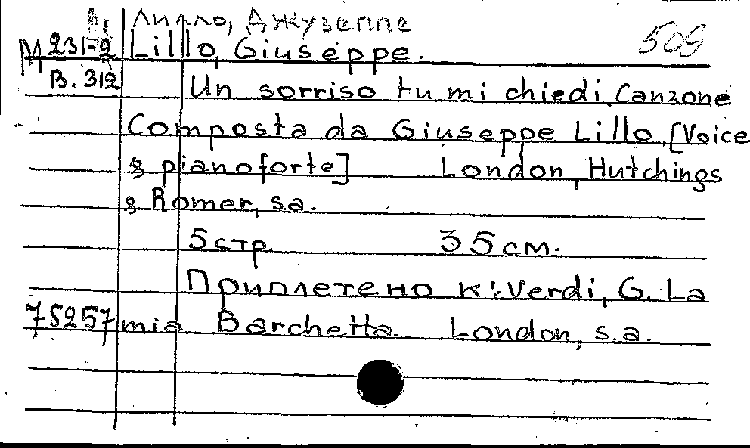 Лилло, Джузеппе
М 231-2 Lillo, Giuseppe. 509
В. 312 Un sorriso tu mi chiedi. Canzone
Composta da Giuseppe Lillo. [Voice
& pianoforte] London, Hutchings
& Romer, s.a.
5 стр. 35 см.
Приплетено к: Verdi, G. La
75257 mia Barchetta. London, s.a.